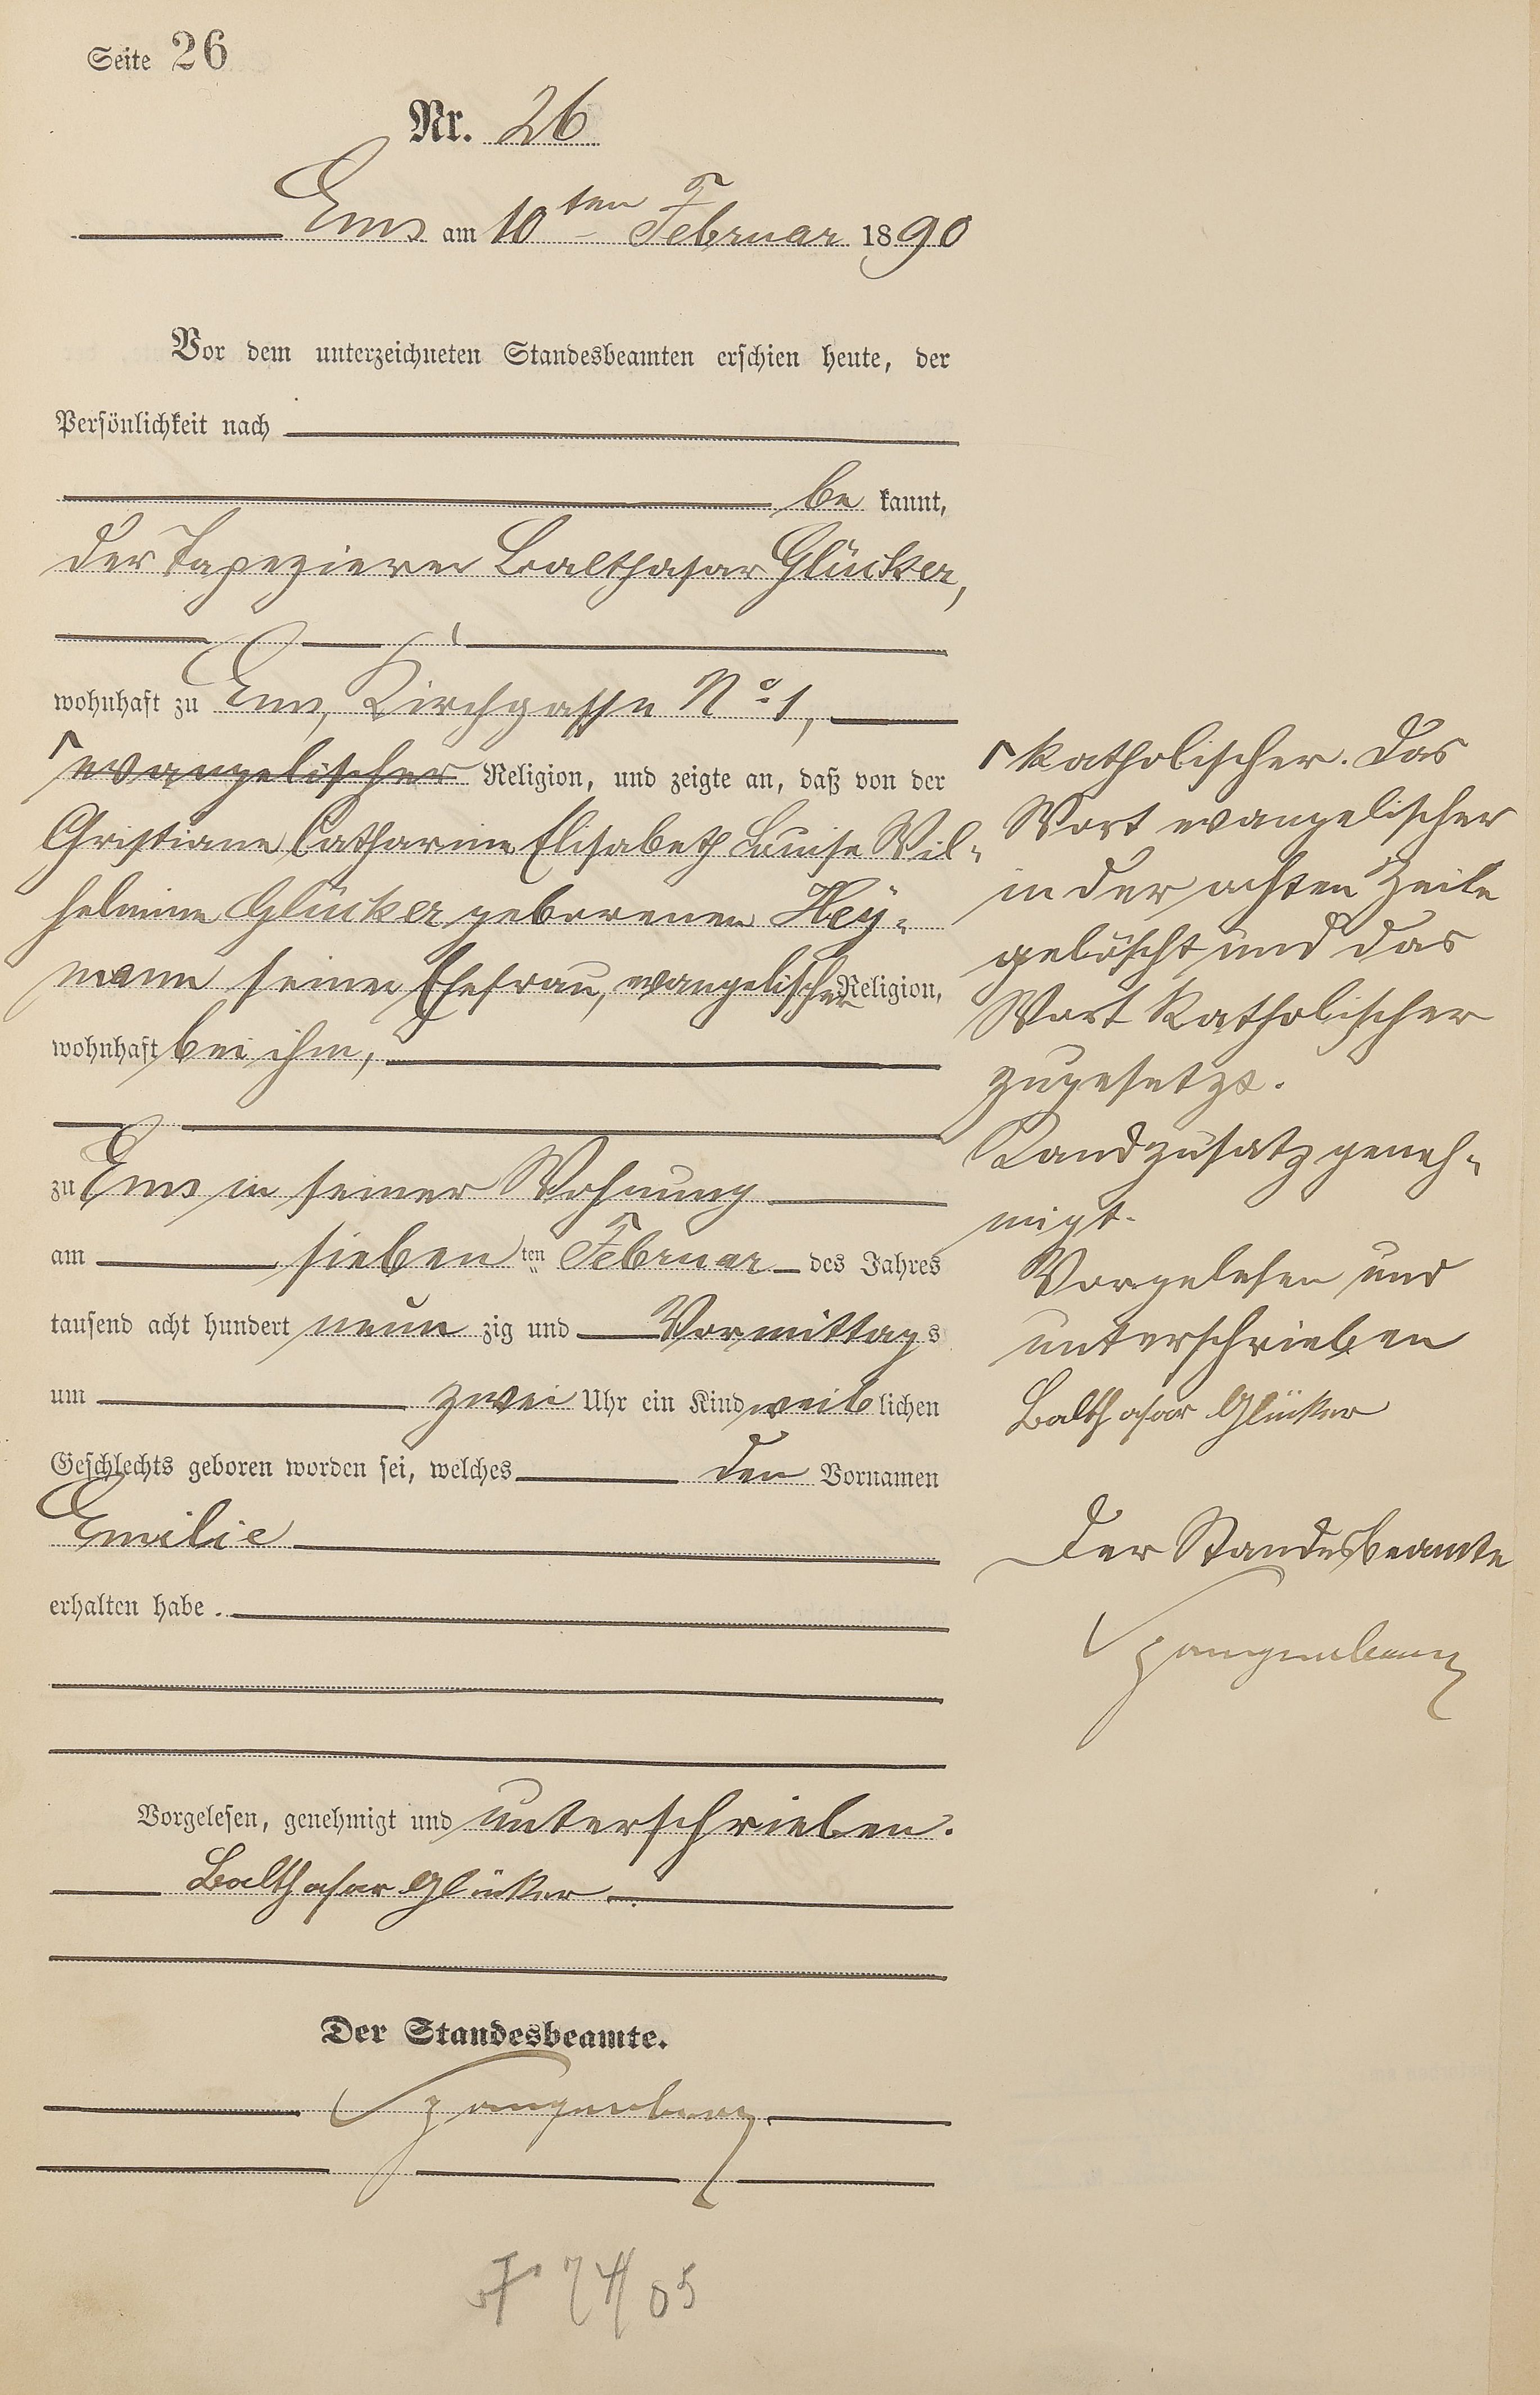 Seite 26
Nr. 26
Ems am 10ten Februar 1890
Vor dem unterzeichneten Standesbeamten erschien heute, der
Persönlichkeit nach
be kannt,
der Tapezierer Balthasar Glücker,
wohnhaft zu Ems, Kirchgasse No 1,
evangelischer Religion, und zeigte an, daß von der
Christiane Catharine Elisabeth Louise Wil-
helmine Glücker geborenen Hey-
mann seiner Ehefrau, evangelischer Religion,
wohnhaft bei ihm,
zu Ems in seiner Wohnung
am sieben ten Februar des Jahres
tausend acht hundert neun zig und Vormittags
um zwei Uhr ein Kind weib lichen
Geschlechts geboren worden sei, welches den Vornamen
Emilie
erhalten habe.
Vorgelesen, genehmigt und unterschrieben.
Balthasar Glücker
Der Standesbeamte.
Spangenberg
74/05
katholischer. Das
Wort evangelischer
in der achten Zeile
gelöscht und das
Wort Katholischer
zugesetzt.
Randzusatz geneh-
migt.
Vorgelesen und
unterschrieben
Balthasar Glücker
Der Standesbeamte
Spangenberg